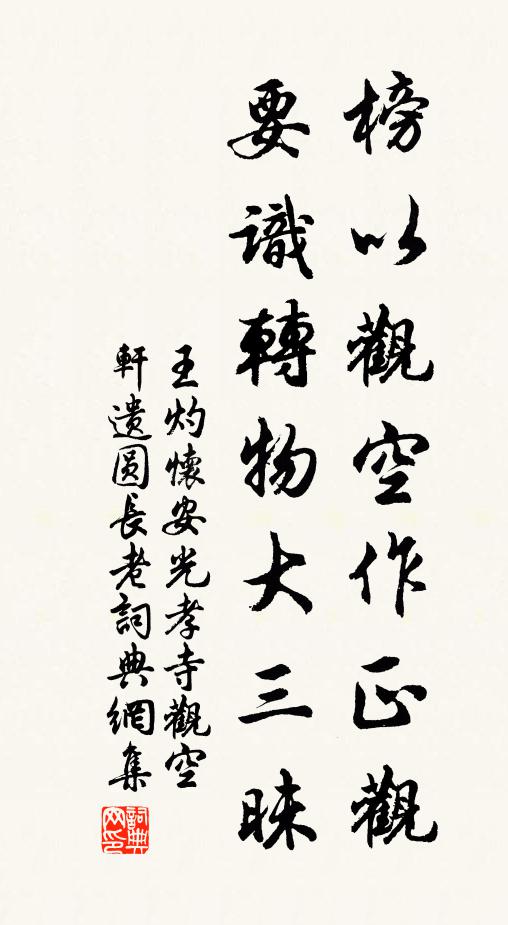 榜以觀空作正觀
要識轉物大三昧
王灼懷安光孝寺觀空
軒遺圆長老詞典網集
詞典
网印